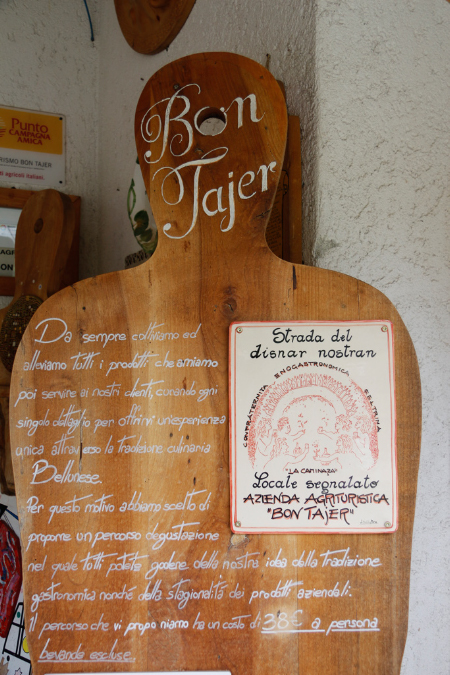 Punto
CAMPAGNA
AMICA
RISMO BON TAJER
ti agricoli italiani
AGR
BON
Bon
Tajer
Da sempre coltiviamo ed
alleviamo tutti i prodotti che amiamo
poi servire ai nostri clienti, curando ogni
singolo dettaglio per offrirvi un'esperienza
unica attraverso la tradizione culinaria
Bellunese.
Per questo motivo abbiamo scelto di
proporre un percorso degustazione
nel quale tutti potete godere della nostra idea della tradizione
gastronomica nonché della stagionalità dei prodotti aziendali.
Il percorso che vi proponiamo ha un costo di 38€ a persona
bevande escluse.
Strada del
disnar nostran
CONFRATERNITA ENOGASTRONOMICA FELTRINA
"LA CAMINAZA"
Locale segnalato
AZIENDA AGRITURISTICA
"BON TAJER"